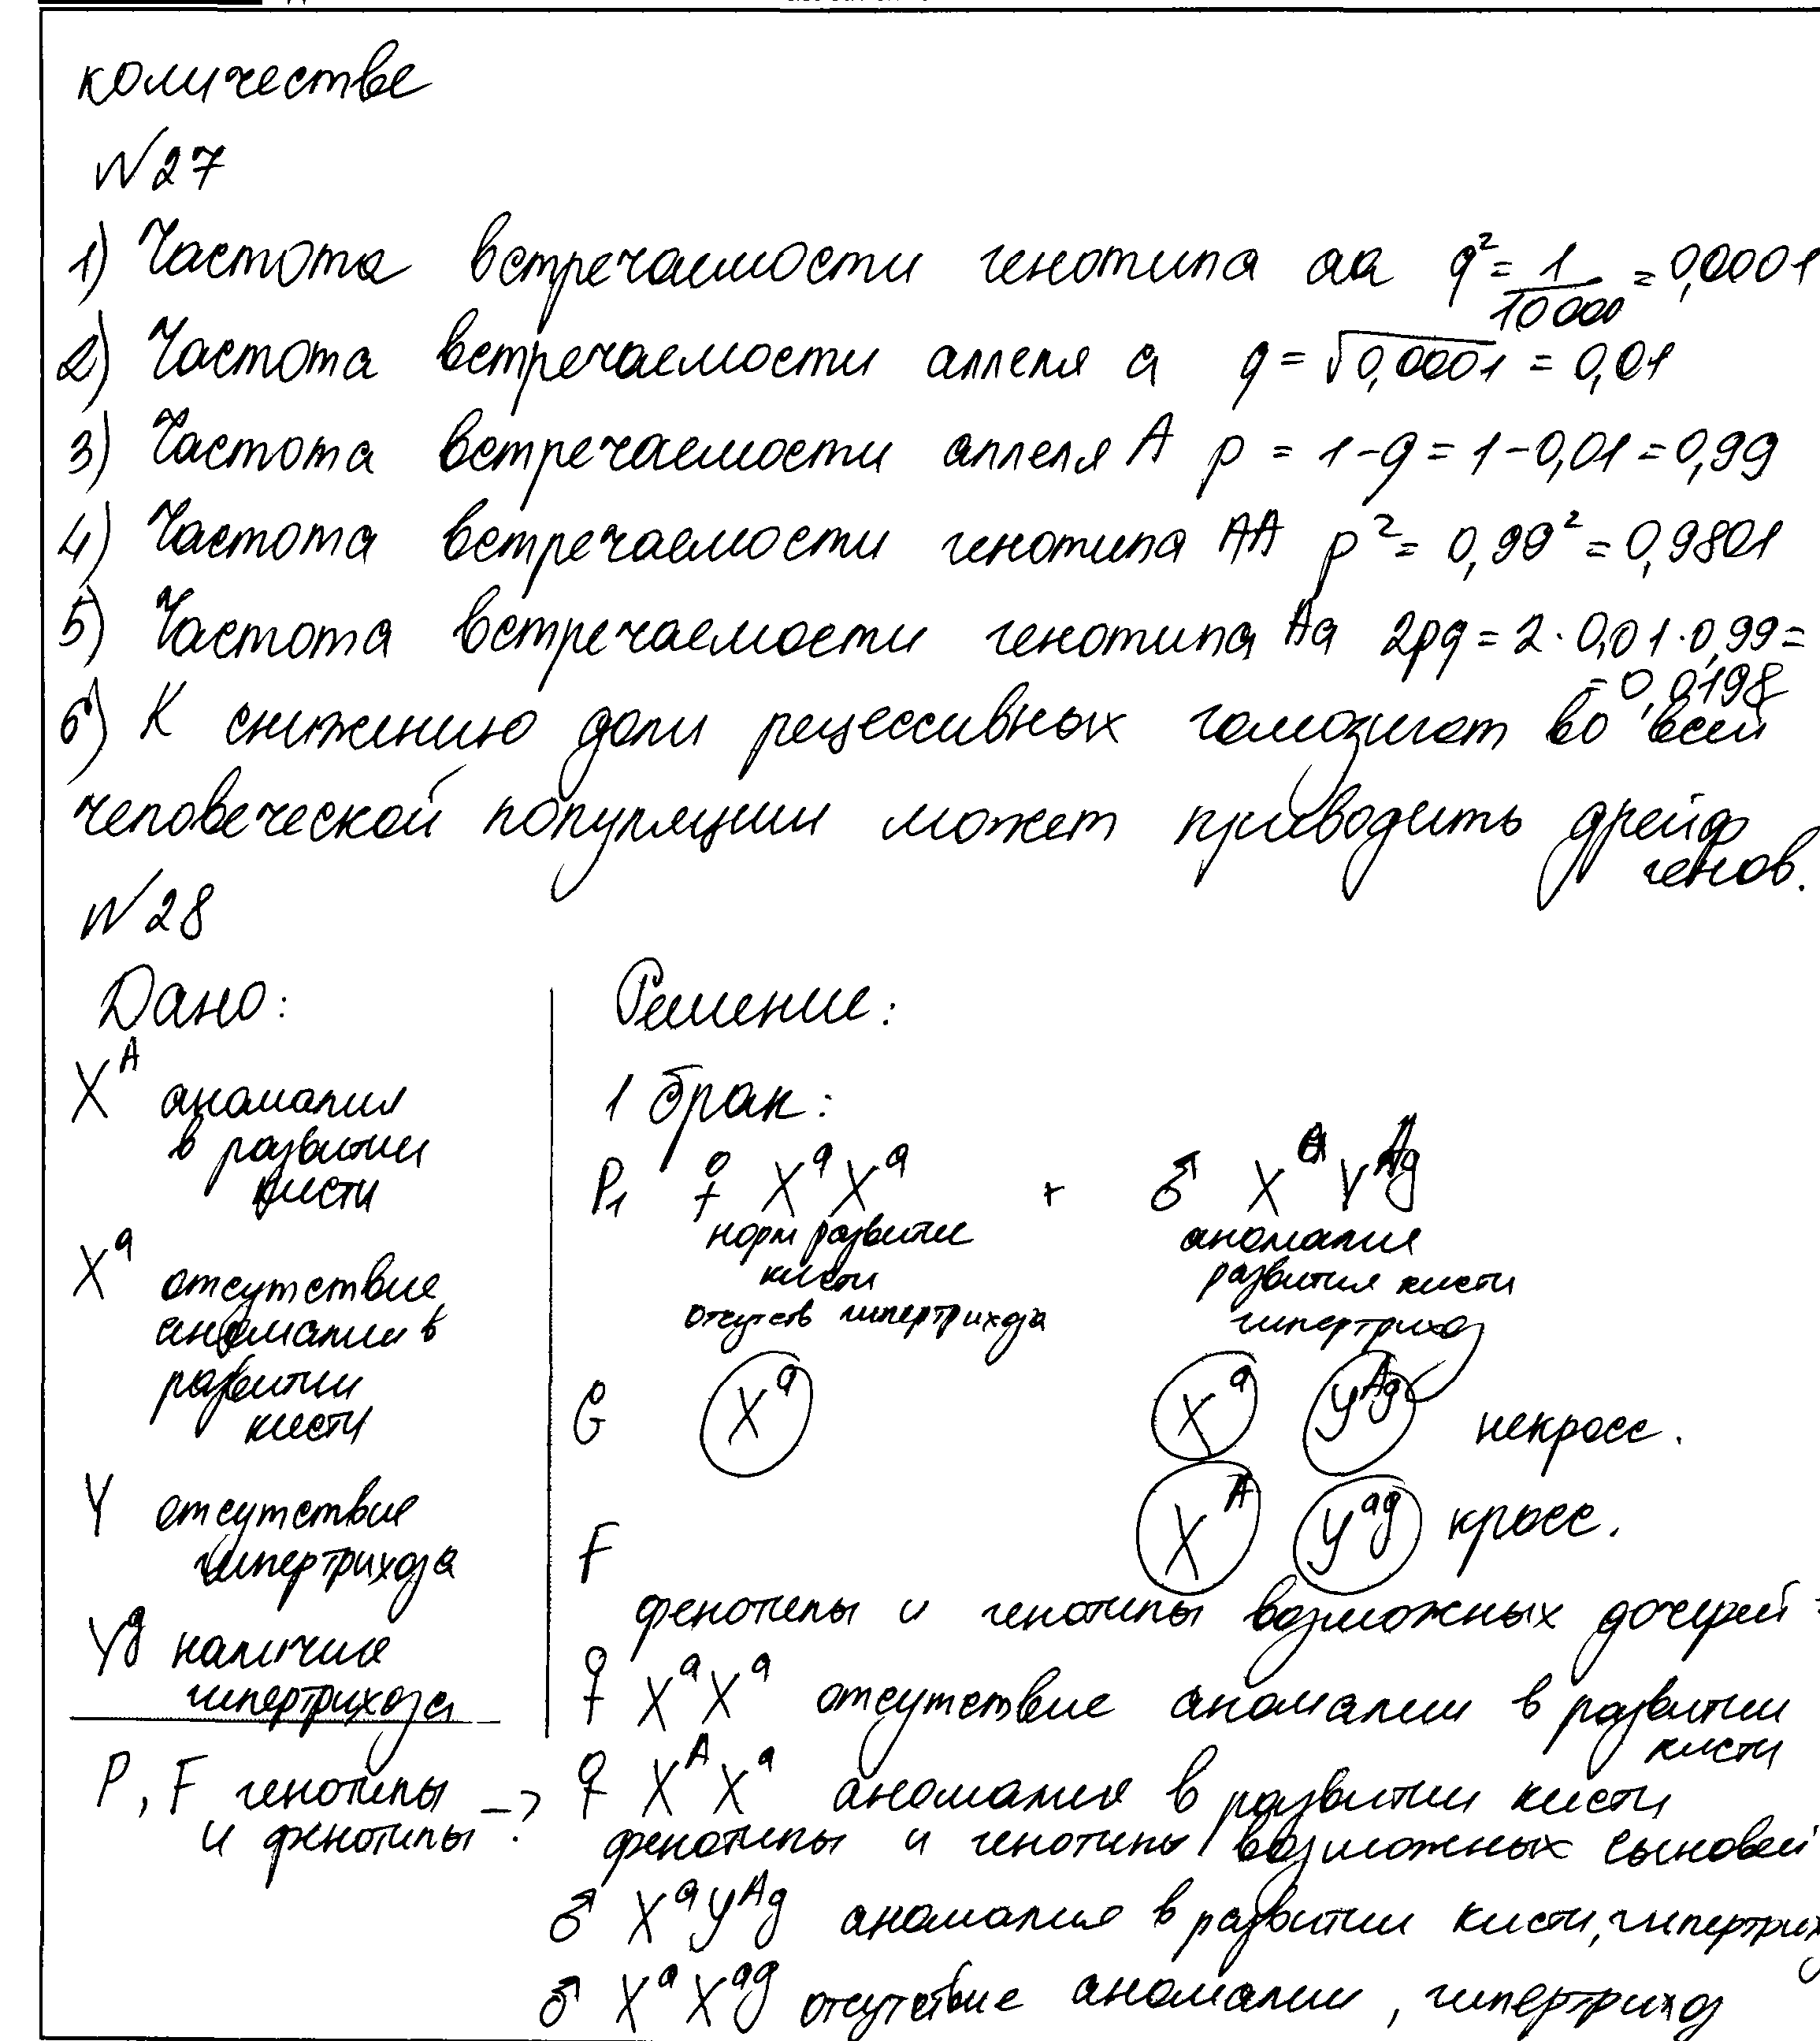 количестве
N27
1) Частота встречаемости генотипа aa q² = 1/10000 = 0,0001
2) Частота встречаемости аллеля a q = √0,0001 = 0,01
3) Частота встречаемости аллеля A p = 1-q = 1-0,01 = 0,99
4) Частота встречаемости генотипа AA p² = 0,99² = 0,9801
5) Частота встречаемости генотипа Aa 2pq = 2·0,01·0,99 =
= 0,0198
6) К снижению доли рецессивных гомозигот во всей
человеческой популяции может приводить дрейф
генов.
N28
Дано:
X^A аномалия
в развитии
кисти
X^a отсутствие
аномалии в
развитии
кисти
Y отсутствие
гипертрихоза
Y^g наличие
гипертрихоза
P, F генотипы
и фенотипы - ?
Решение:
1 брак:
P₁ ♀ X^a X^a × ♂ X^a Y^Ag
норм развитие
кисти
отсутств гипертрихоза
аномалия
развития кисти
гипертрихоз
G X^a X^a Y^Ag некросс.
X^A Y^ag кросс.
F
фенотипы и генотипы возможных дочерей:
♀ X^a X^a отсутствие аномалии в развитии
кисти
♀ X^A X^a аномалия в развитии кисти
фенотипы и генотипы возможных сыновей
♂ X^a Y^Ag аномалия в развитии кисти, гипертрих
♂ X^a X^ag отсутствие аномалии, гипертрихоз